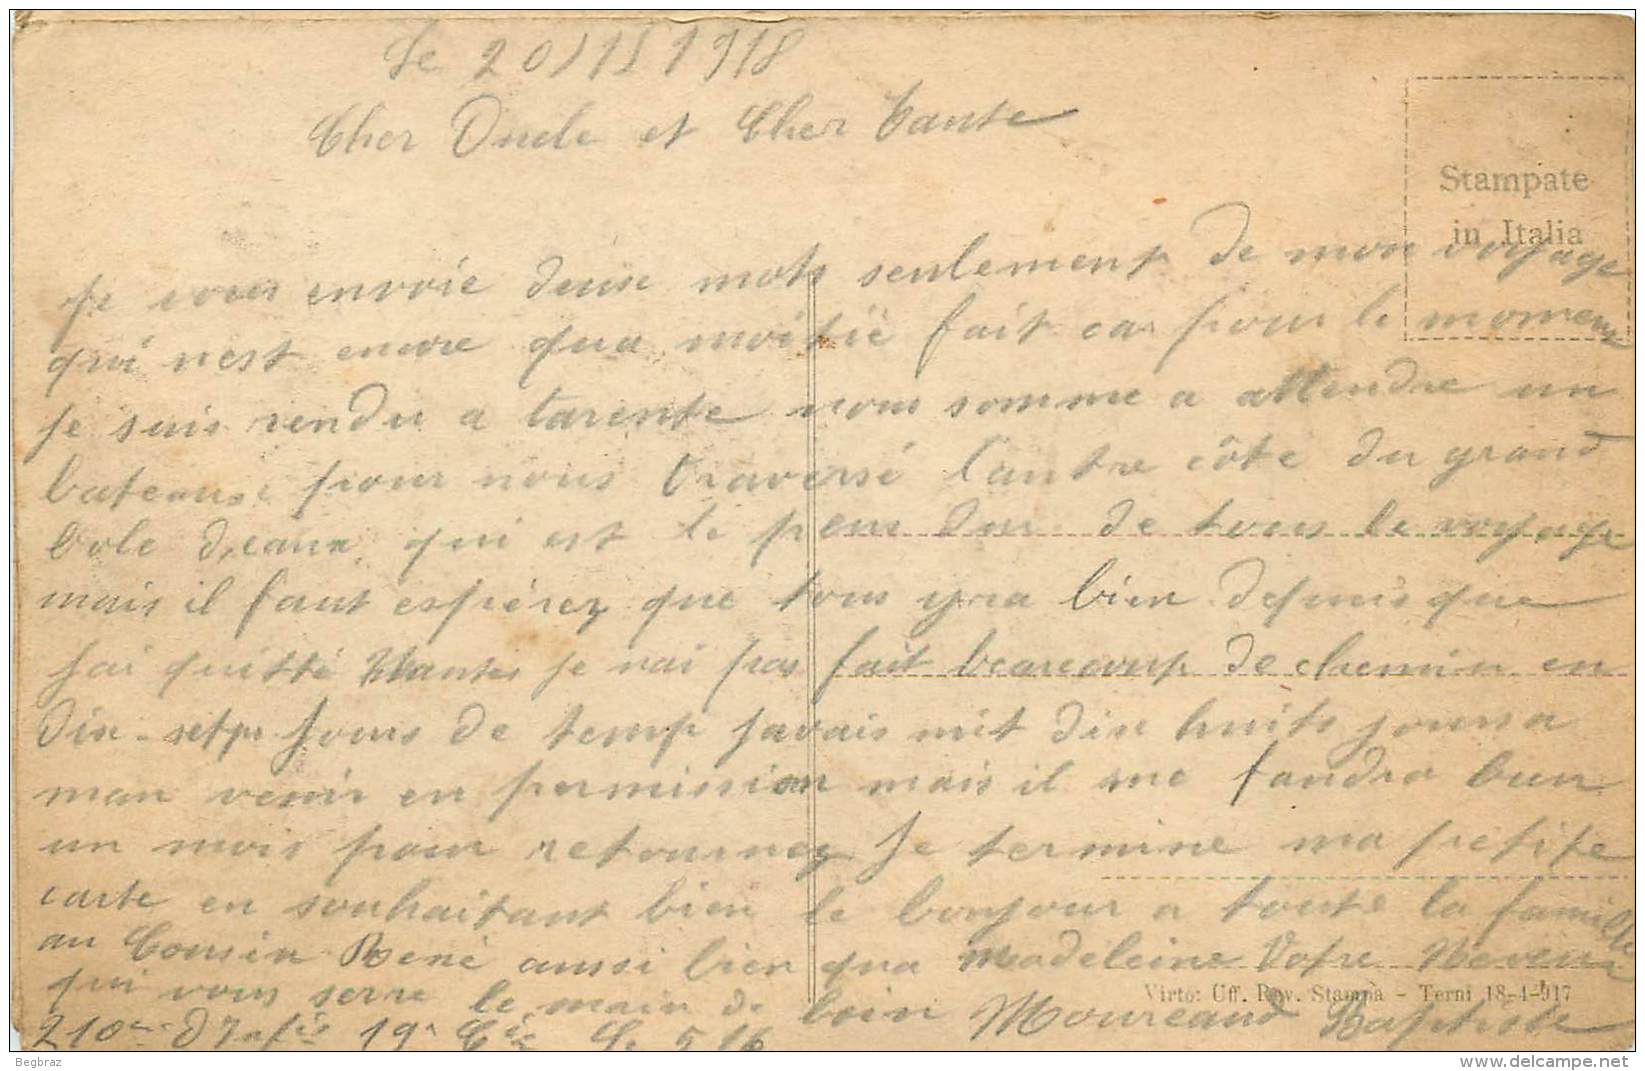 Le 20/11 1918
Cher Oncle et Cher Tante
Stampate
in Italia
Je vous envoie deuse mots seulement de mon voyage
qui nest encore qua moitié fait car pour le moment
je suis rendu a tarente nous somme a attendre un
bateaus pour nous traversé l'autre côte du grand
bole deaux qui est le peus dur de tous le voyage
mais il faut espérez que tous yra bien depuis que
jai quitté Nantes je nai pas fait beaucoup de chemin en
dix-sept jours de temp javais mit dix huits jours a
man venir en permission mais il me faudra bien
un mois pour retournez Je termine ma petite
carte en souhaitant bien le bonjour a toute la famille
au Cousin René aussi bien qua Madeleine Votre Neveu
qui vous serre le main de loin Moureaud Baptiste
Virto: Uff. Rev. Stampa - Terni 18-4-917
210e d'Infie 19e Cie S. 516
Begbraz
www.delcampe.net